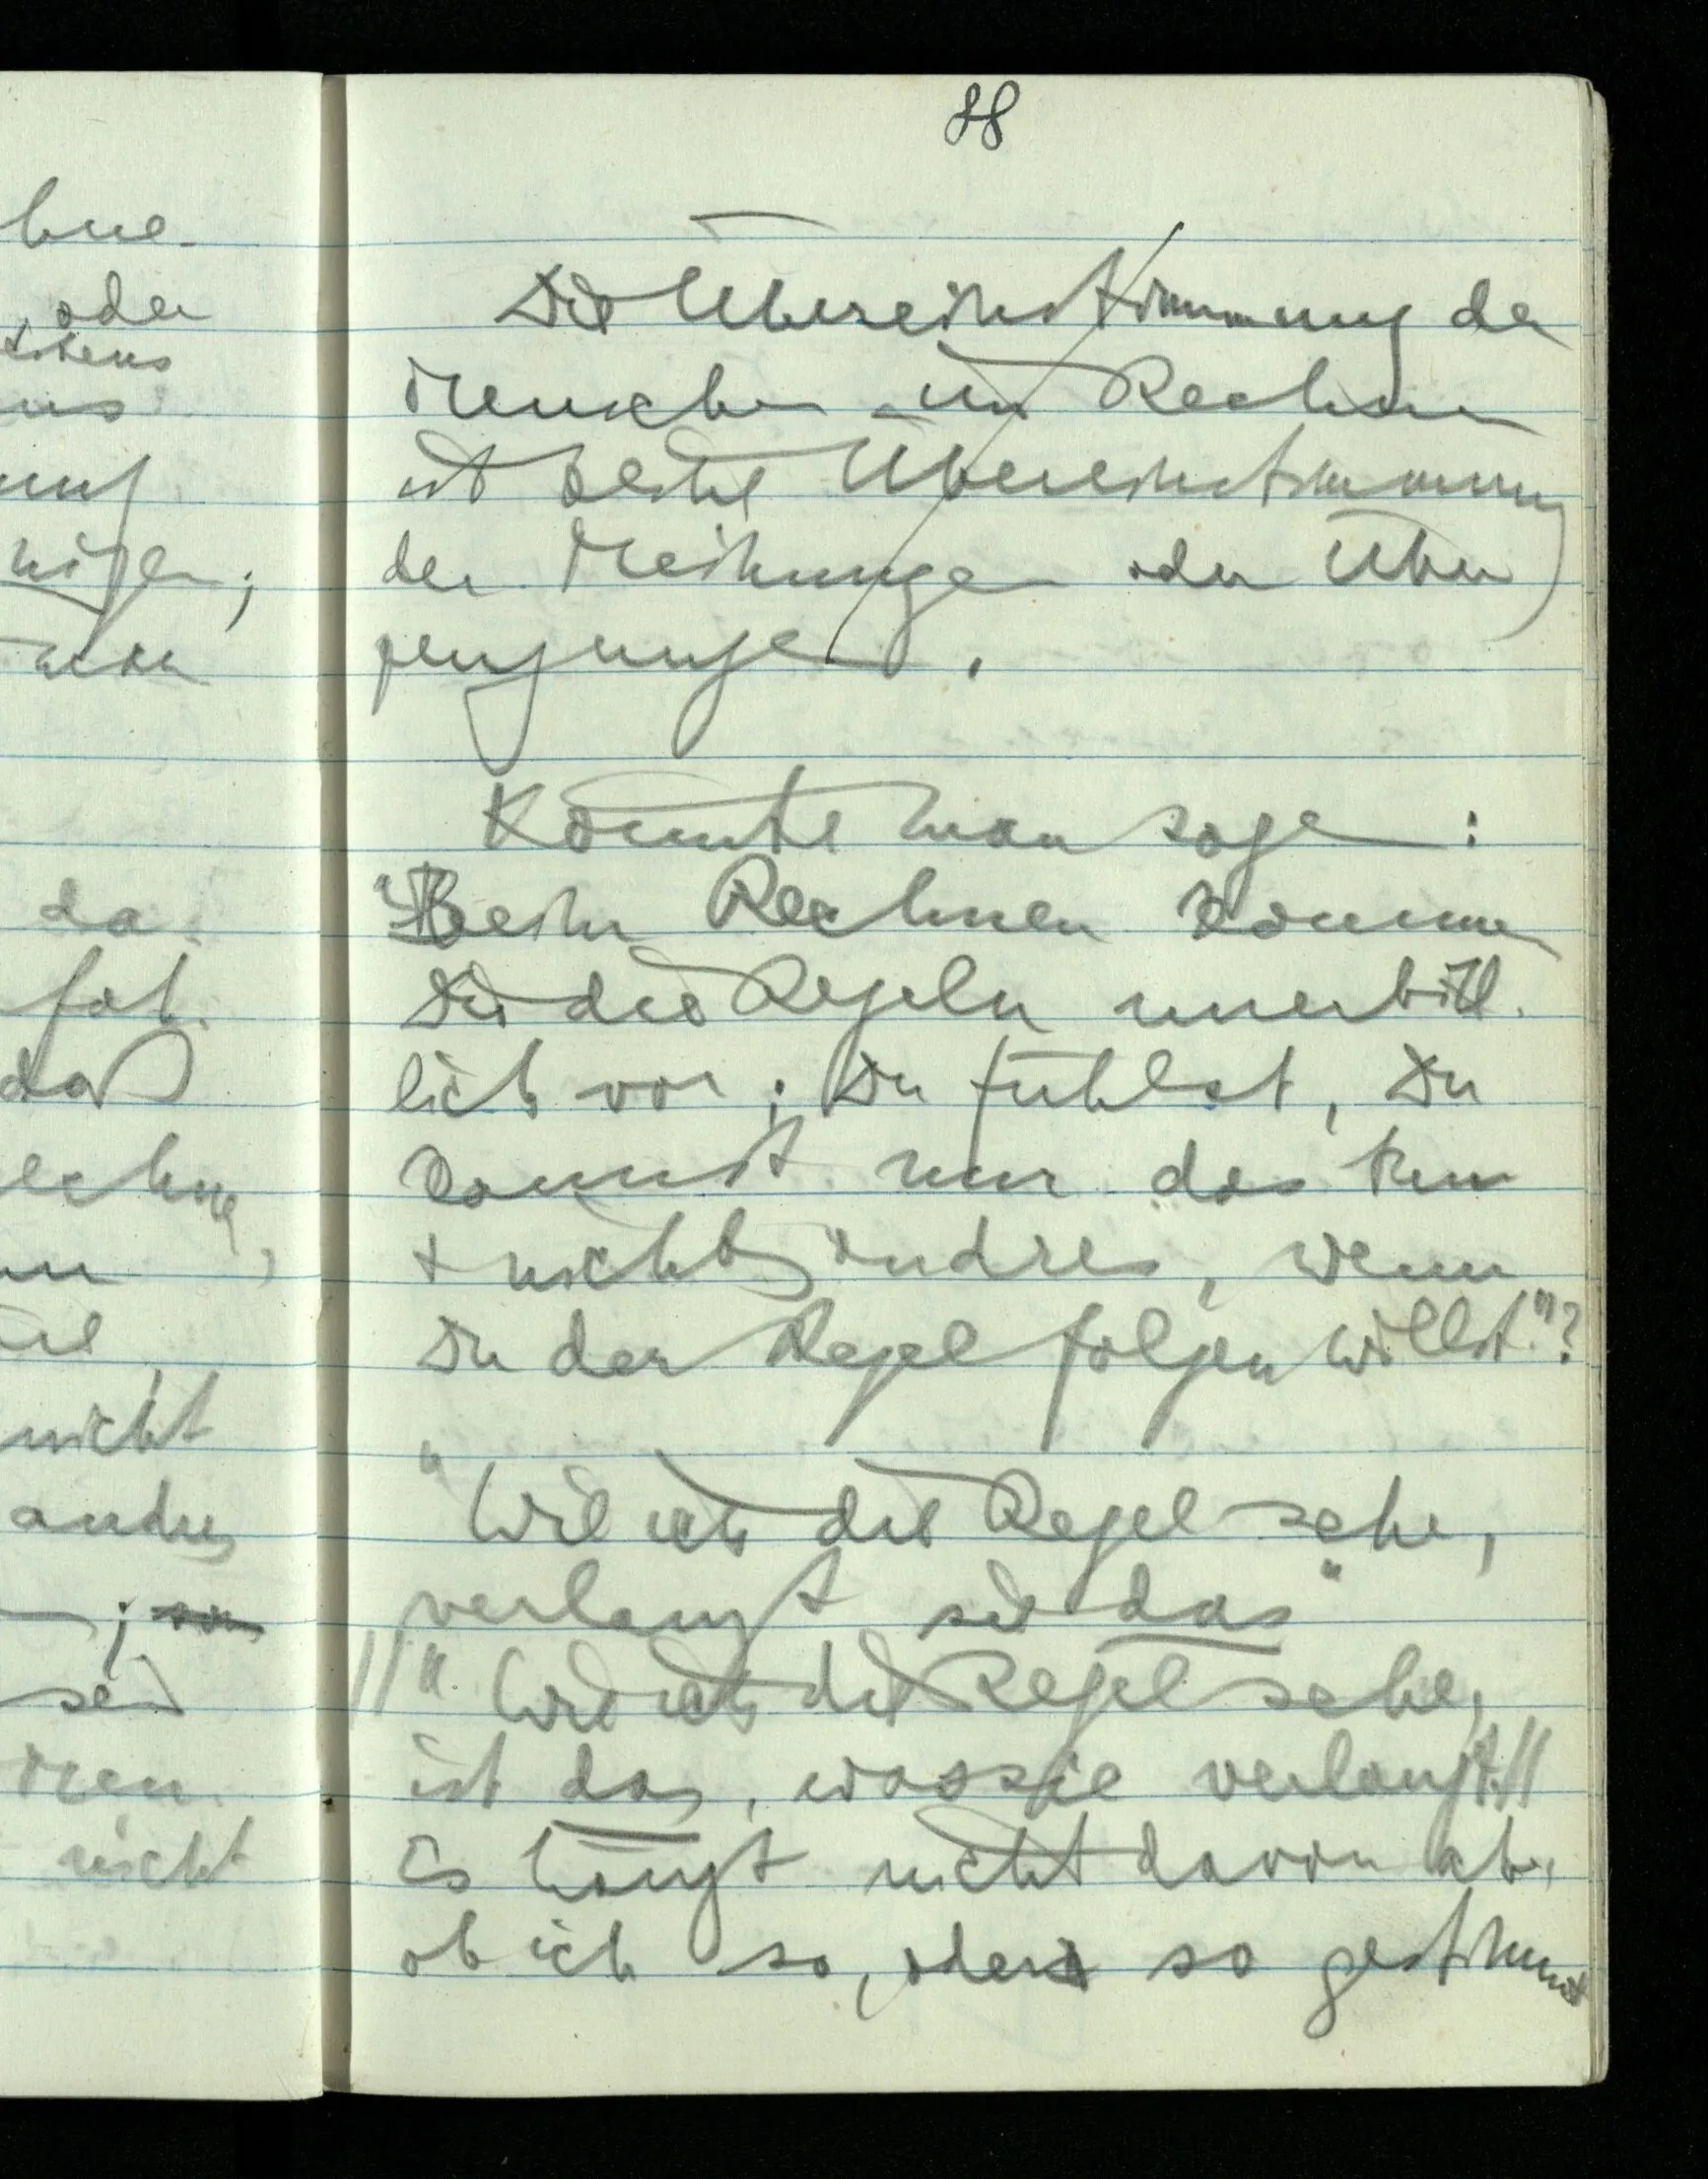 oder
da
daß
nicht
andres
sei
nicht
88
Die Übereinstimmung der
Menschen im Rechnen
ist keine Übereinstimmung
der Meinungen oder Über
zeugungen.
Könnte man sagen:
"Beim Rechnen kommen
Dir die Regeln unerbitt-
lich vor; Du fühlst, Du
kannst nur das tun
+ nichts andres, wenn
Du der Regel folgen willst."?
"Wie ich die Regel sehe,
verlangt sie das"
//"Wie ich die Regel sehe,
ist das, was sie verlangt.//
Es hängt nicht davon ab,
ob ich so, oder so gestimmt